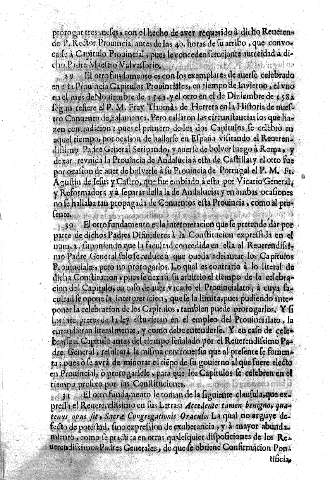 prorogar tres meses, con el hecho de aver requerido à dicho Reveren-
do P. Rector Provincial, antes de las 40. horas de su arribo, que convo-
casse à Capitulo Provincial, pues le venceden semejante autoridad a di-
cho Padre Maestro Valvassorio.
29 El otro fundamento es con los exemplares de averse celebrado
en esta Provincia Capitulos Provinciales, en tiempo de Invierno, el uno
en el mes de Noviembre de 1541. y el otro en el de Diziembre de 1582.
segun refiere el P. M. Fray Thomàs de Herrera en la Historia de nuestro
Convento de Salamanca. Pero callaron las circunstancias que los ha-
zen contradicion; pues el primero de los dos Capitulos se celebrò en
aquel tiempo, por ocasion de hallarse en España visitando el Reveren-
dissimo Padre General Seripando, y antes de bolver luego à Roma, y de-
xar reunida la Provincia de Andalucia à esta de Castilla; y el otro fue
por ocasion de aver de bolverse à su Provincia de Portugal el P. M. Fr.
Agustin de Jesus y Castro, que fue embiado à esta por Vicario General,
y Reformador, y à separar della la de Andalucia; y en ambas ocasiones
no se hallaba tan propagada de Conventos esta Provincia, como al pre-
sente.
30 El otro fundamento es la interpretacion que se pretende dar por
parte de dichos Padres Difinidores à la Constitucion expressada en el
num. 2. suponiendo que la facultad concedida en ella al Reverendissi-
mo Padre General solo se reduce à que pueda adelantar los Capitulos
Provinciales, pero no prorogarlos. Lo qual es contrario à lo literal de
dicha Constitucion, pues le concede à su arbitrio el tiempo de la celebra-
cion del Capitulo, en caso de aver vacado el Provincialato, à cuya fa-
cultad se opone la interpretacion, que se la limita, pues pudiendo ante-
poner la celebracion de los Capitulos, tambien puede prorogarlos. Y si
los interpretes de la ley estuvieran en el empleo del Provincialato, la
entendieran literalmente, y como debe entenderse. Y en caso de cele-
brarse el Capitulo antes del tiempo señalado por el Reverendissimo Pa-
dre General, resultarà la misma controversia que al presente se fomen-
ta, pues ò se avrà de minorar el tiempo de su govierno al que fuere electo
en Provincial, ò prorogarsele, para que los Capitulos se celebren en el
tiempo prolixo por las Constituciones.
31 El otro fundamento le toman de la siguiente clausula, que ex-
pressa el Reverendissimo en sus Letras: Accedente tamen benigno, qua-
tenus opus sit, Sacræ Congregationis Oraculo. La qual no arguye de-
fecto de potestad, sino expression de exuberancia, y à mayor abunda-
miento, como se practica en otras qualesquier disposiciones de los Re-
verendissimos Padres Generales, de que se obtiene Confirmacion Pon-
tificia,